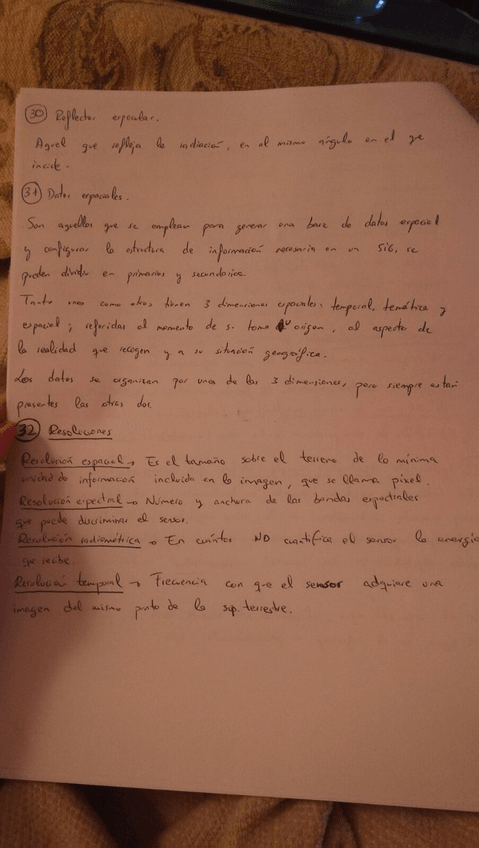 30 Reflector especular.
Aquel que refleja la radiación, en el mismo ángulo en el que
incide.
31 Datos espaciales.
Son aquellos que se emplean para generar una base de datos espacial
y configurar la estructura de información necesaria en un SIG, se
pueden dividir en primarios y secundarios.
Tanto unos como otros tienen 3 dimensiones espaciales: temporal, temática y
espacial; referidas al momento de su toma u origen, al aspecto de
la realidad que recogen y a su situación geográfica.
Los datos se organizan por una de las 3 dimensiones, pero siempre están
presentes las otras dos.
32 Resoluciones
Resolución espacial → Es el tamaño sobre el terreno de la mínima
unidad de información incluida en la imagen, que se llama pixel.
Resolución espectral → Número y anchura de las bandas espectrales
que puede discriminar el sensor.
Resolución radiométrica → En cuántos ND cuantifica el sensor la energía
que recibe.
Resolución temporal → Frecuencia con que el sensor adquiere una
imagen del mismo punto de la sup. terrestre.